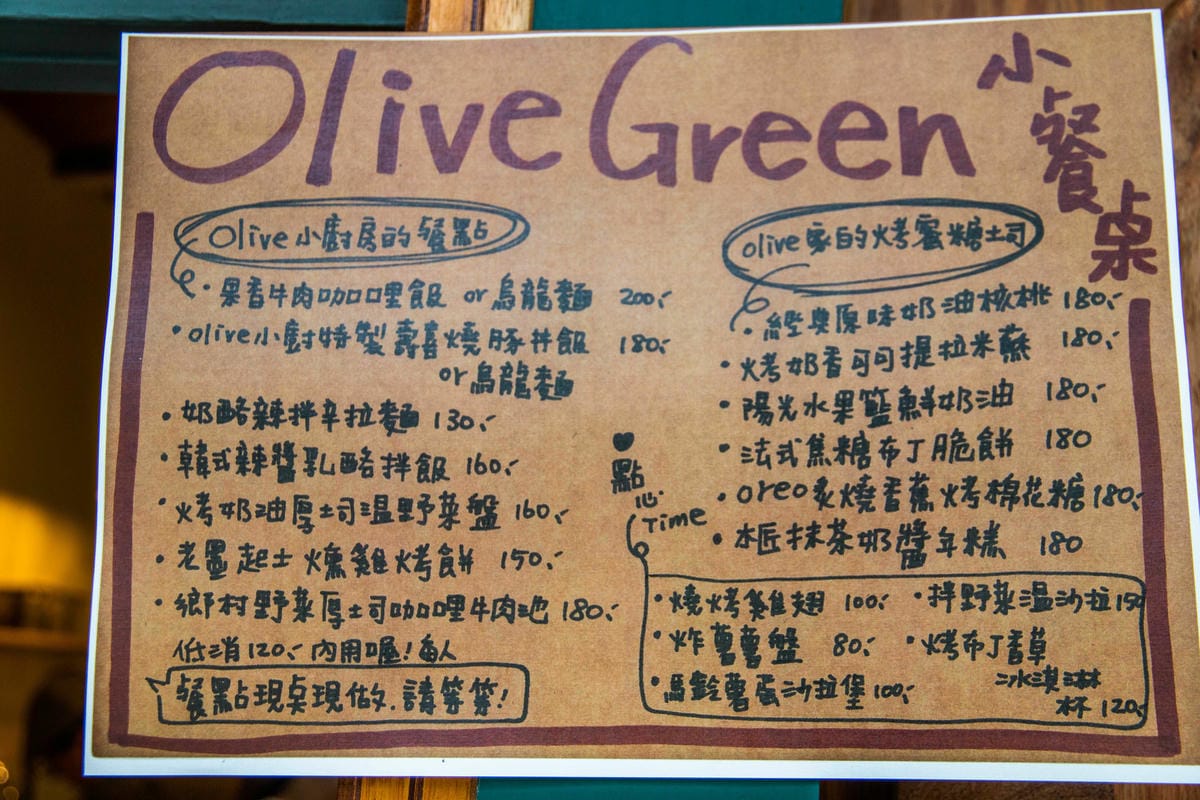 Olive Green 小餐桌
Olive小廚房的餐點
·果香牛肉咖哩飯 or烏龍麵 200.-
·olive小廚特製壽喜燒豚丼飯 180.-
or烏龍麵
·奶酪辣拌辛拉麵 130.-
·韓式辣醬乳酪拌飯 160.-
·烤奶油厚土司溫野菜盤 160.-
·老墨起士燻雞烤餅 150.-
·鄉村野菜厚土司咖哩牛肉池 180.-
低消120.-內用喔!每人
餐點現桌現做.請等等!
olive家的烤蜜糖土司
·經典原味奶油核桃 180.-
·烤奶香可可提拉米蘇 180.-
·陽光水果籃鮮奶油 180.-
·法式焦糖布丁脆餅 180
·oreo炙燒香蕉烤棉花糖 180.-
·本匠抹茶奶醬年糕 180
♥點心Time
·燒烤雞翅 100.-
·拌野菜溫沙拉 150
·炸薯薯盤 80.-
·烤布丁香草
冰淇淋
杯 120.-
·馬鈴薯蛋沙拉堡 100.-